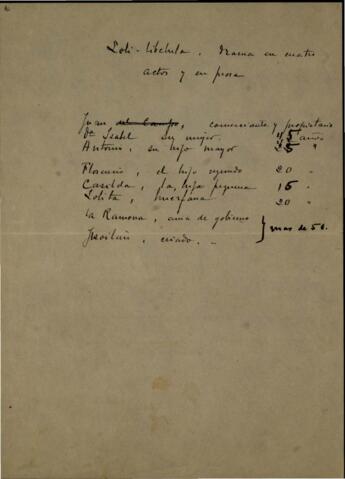 Loti-libélula. Drama en cuatro
actos y en prosa
Juan del Campo, comerciante y propietario
Dª Isabel su mujer. 45 años
Antonio, su hijo mayor 25 "
Florencio, el hijo segundo 20 "
Casilda, la hija pequeña 16 "
Lolita, huerfana 20 "
La Ramona, ama de gobierno
mas de 50.
criado.